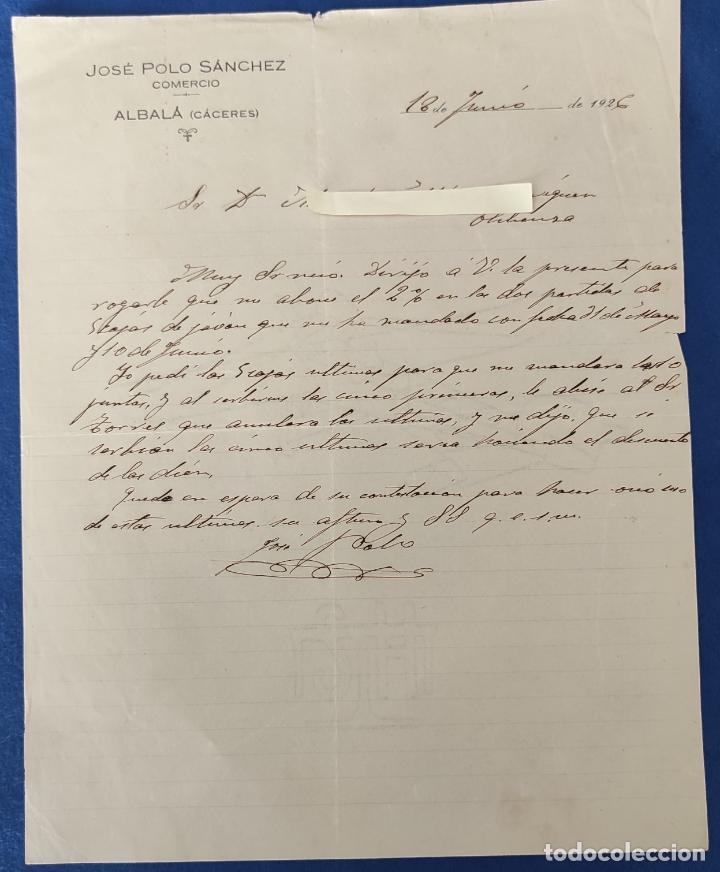 JOSÉ POLO SÁNCHEZ
COMERCIO
ALBALÁ (CÁCERES)
18 de Junio de 1926
Sr Dn
Olibenza
Muy Sr mio. Dirijo á V. la presente para
rogarle que me abone el 2% en las dos partidas de
5 cajas de jabon que me ha mandado con fecha 31 de Mayo
y 10 de Junio.
Yo pedi las 5 cajas ultimas para que me mandara las 10
juntas, y al recibirse las cinco primeras, le abise al Sr
Torres que anulara las ultimas, y me dijo, que si
serbian las cinco ultimas seria haciendo el descuento
de las diez.
Quedo en espera de su contestacion para hacer ó no uso
de estas ultimas. su aftmo y SS q. e. s. m.
José Polo
todocoleccion